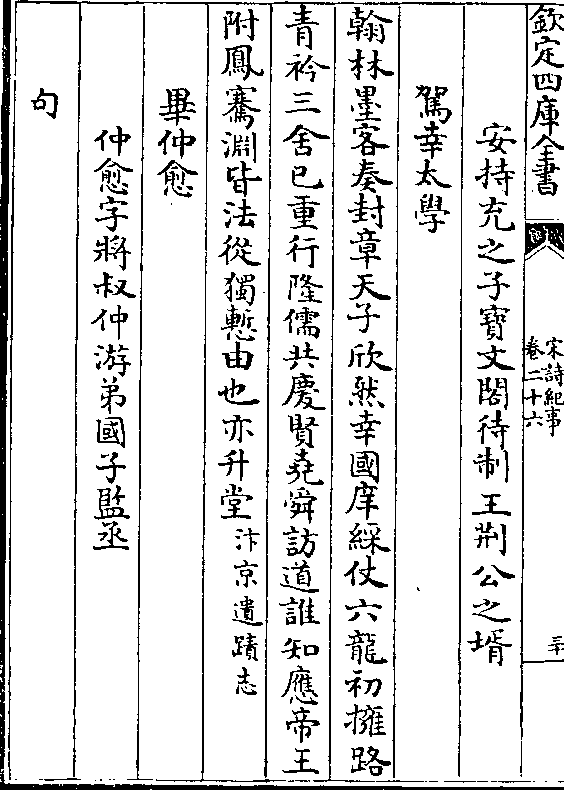 欽定四庫全書
宋詩紀事
卷二十六
三十
安持充之子寶文閣待制王荆公之壻
駕幸太學
翰林墨客奏封章天子欣然幸國庠綵仗六龍初擁路
青衿三舍已重行隆儒共慶賢堯舜訪道誰知應帝王
附鳳騫淵皆法從獨慙由也亦升堂汴京遺蹟志
畢仲愈
仲愈字將叔仲游弟國子監丞
句